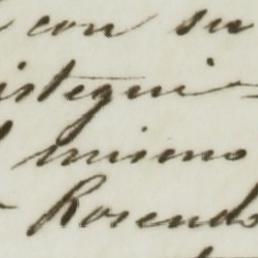 con su
istegui
mismo
Rosendo